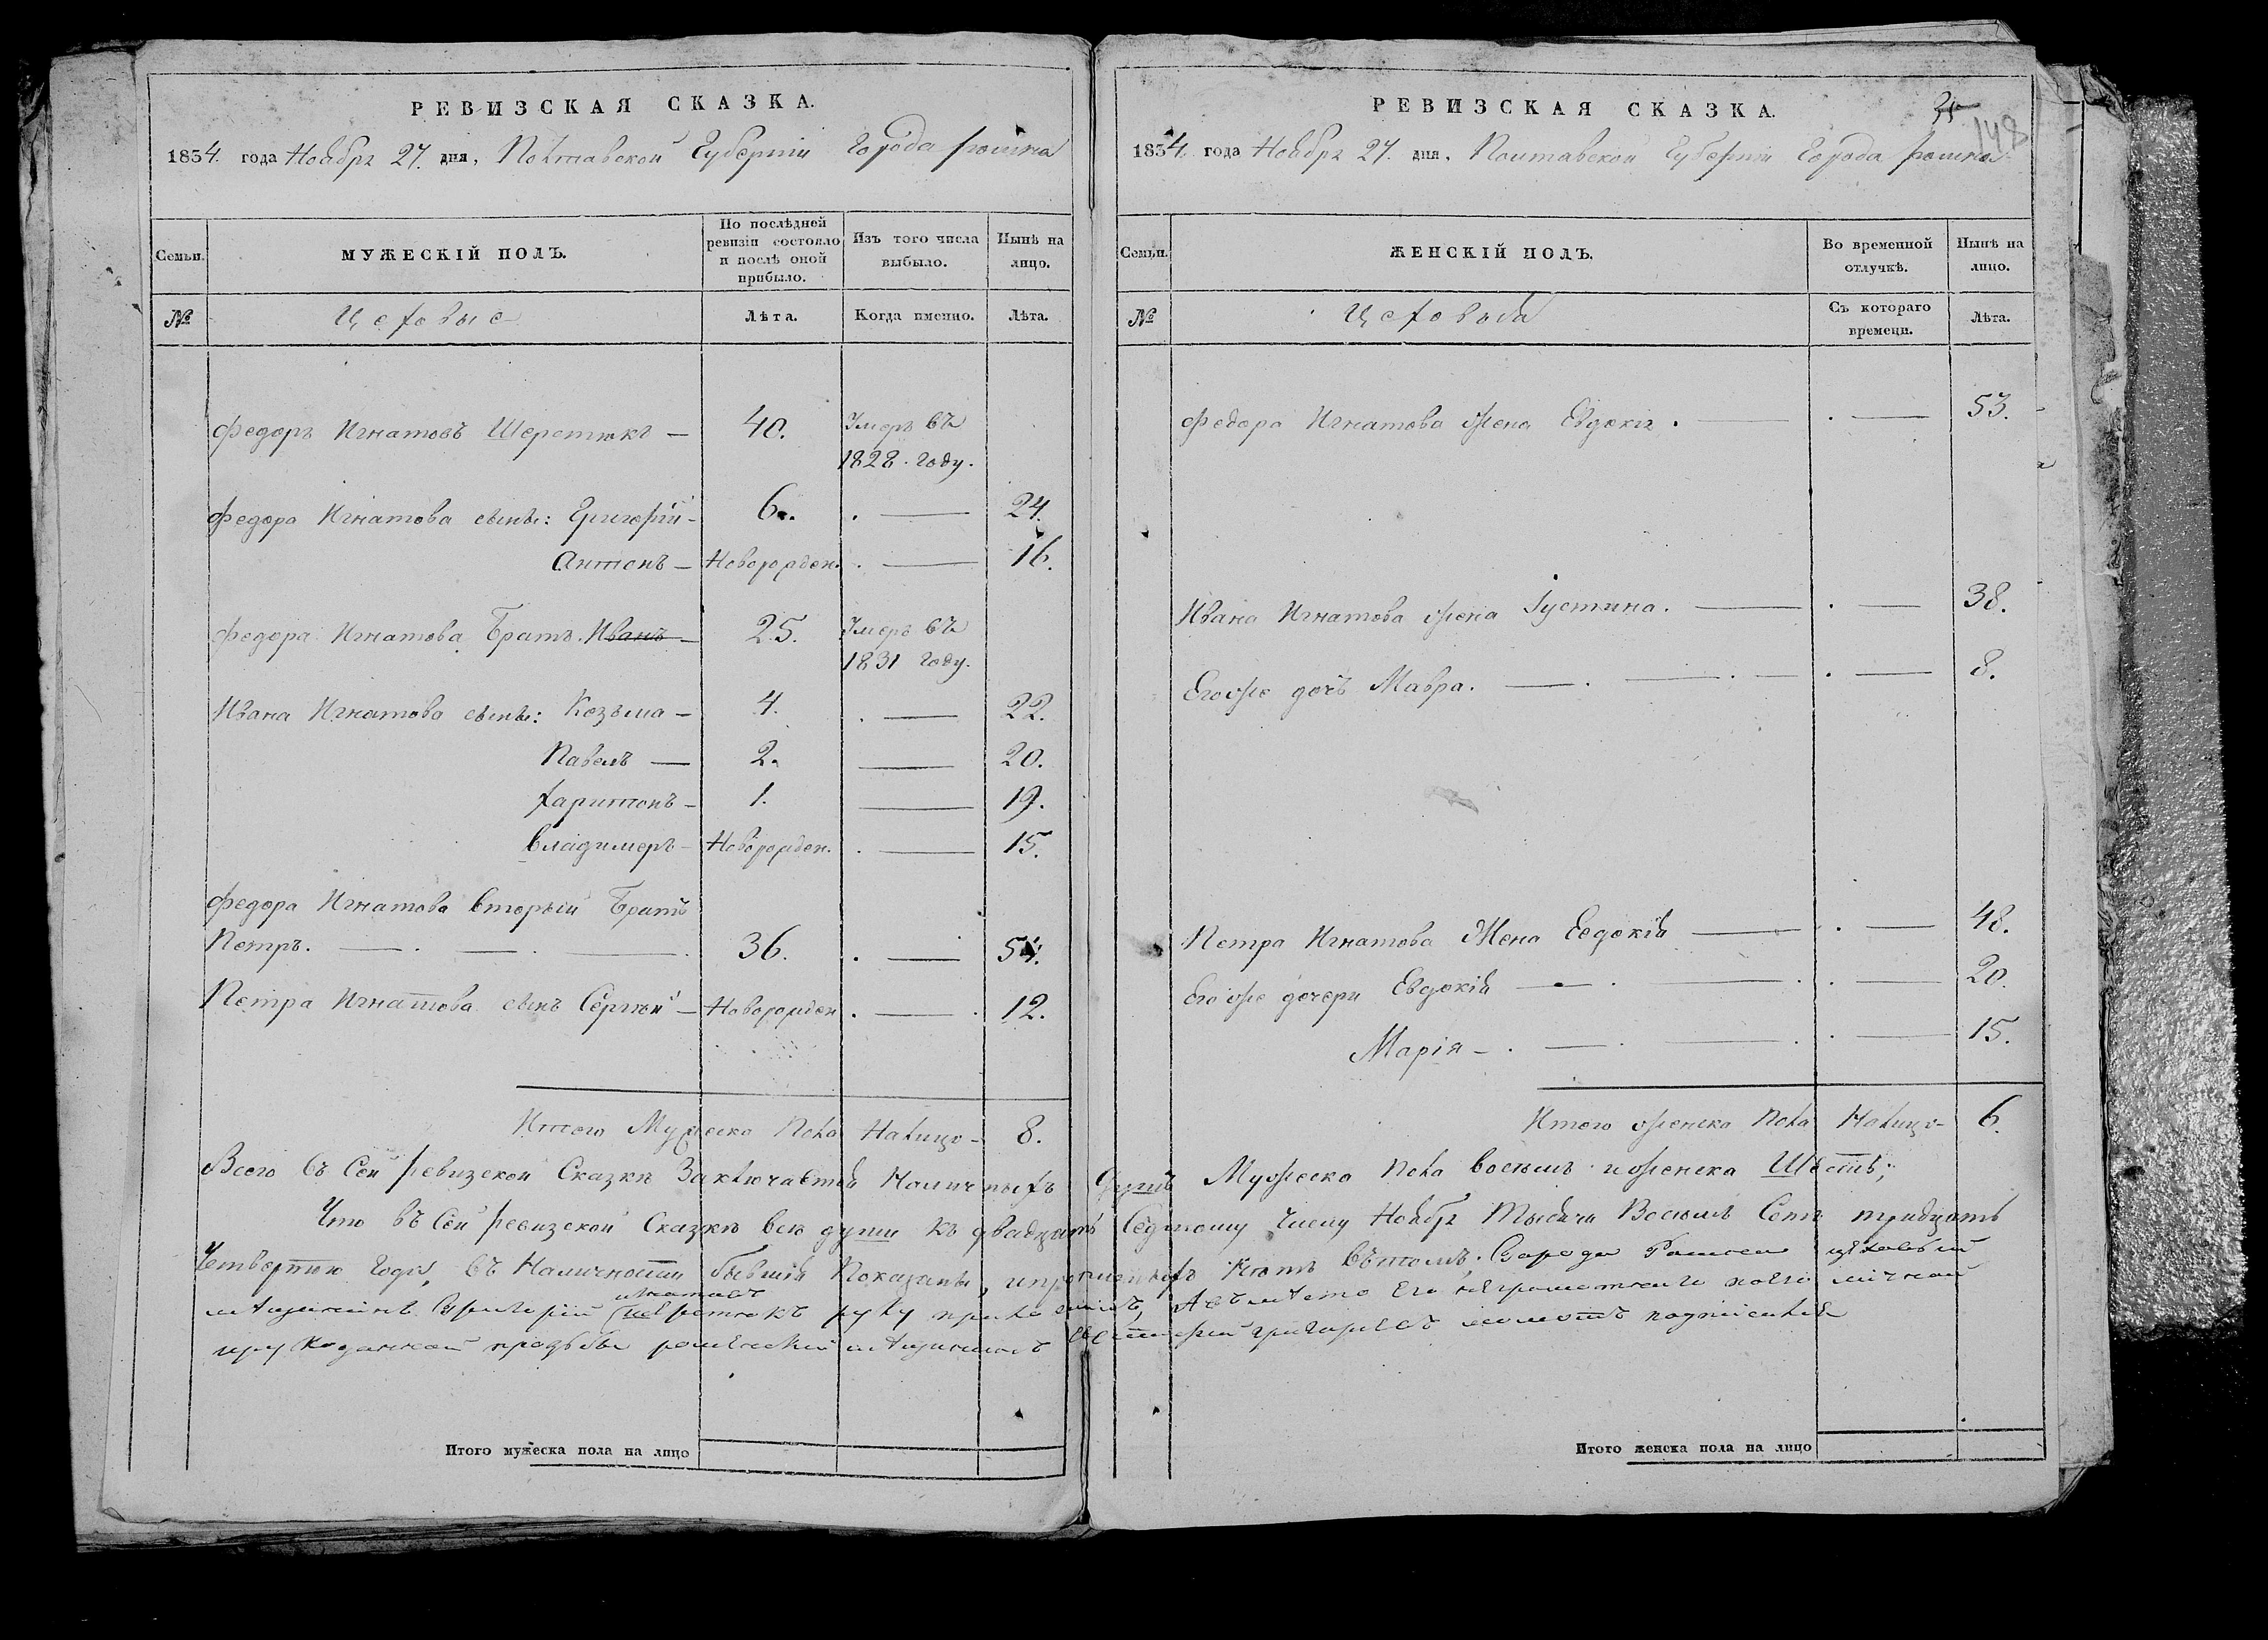 РЕВИЗСКАЯ СКАЗКА.
1834 года Ноября 27. дня, Полтавской Губерніи Города Ромна
Семьи. МУЖЕСКІЙ ПОЛЪ. По послѣдней ревизіи состояло и послѣ оной прибыло. Изъ того числа выбыло. Нынѣ на лицо.
№ Цеховые Лѣта. Когда именно. Лѣта.
Федоръ Игнатовъ Шерстюкъ — 40. Умеръ въ
1828. году.
Федора Игнатова сынъ: Григорій — 6. . — 24.
Антонъ — Новорожден. . — 16.
Федора Игнатова Братъ. Иванъ — 25. Умеръ въ
1831 году.
Ивана Игнатова сынъ: Козьма — 4. . — 22.
Павелъ — 2. — 20.
Харитонъ — 1. — 19.
Владимеръ — Новорожден. . — 15.
Федора Игнатова вторый Братъ
Петръ. — . — . — . 36. . — 54.
Петра Игнатова сынъ Сергѣй — Новорожден . — . 12.
Итого Мужеска Пола Налицо — 8.
РЕВИЗСКАЯ СКАЗКА.
148
1834 года Ноября 27. дня, Полтавской Губерніи Города Ромна
Семьи. ЖЕНСКІЙ ПОЛЪ. Во временной отлучкѣ. Нынѣ на лицо.
№ Цеховыя Съ котораго времени. Лѣта.
Федора Игнатова жена Евдокія . — . — 53.
Ивана Игнатова жена Іустина. — . — 38.
Егоже дочь Мавра. — . — . — . — 8.
Петра Игнатова Жена Евдокія — . — 48.
Егоже дочери Евдокія — . — . . — 20.
Марія — . — . — . . — 15.
Итого женска Пола Налицо — 6.
Всего въ Сей ревизской Сказкѣ Заключается Наличныхъ Душъ Мужеска Пола восемь и женска Шесть;
Что въ Сей ревизской Сказкѣ всѣ души къ двадцать Седьмому числу Ноября Тысяча Восемь Сотъ тридцать
Четвертаго Года, въ Наличности бывшія Показаны, и прописныхъ нѣтъ въ томъ: Города Ромна цѣховый
Игнатовъ
Григорій Шерстюкъ руку приложилъ, а вмѣсто его неграмотнаго по его личной
прозьбы роменскій мѣщанинъ подписался
Итого мужеска пола на лицо
Итого женска пола на лицо